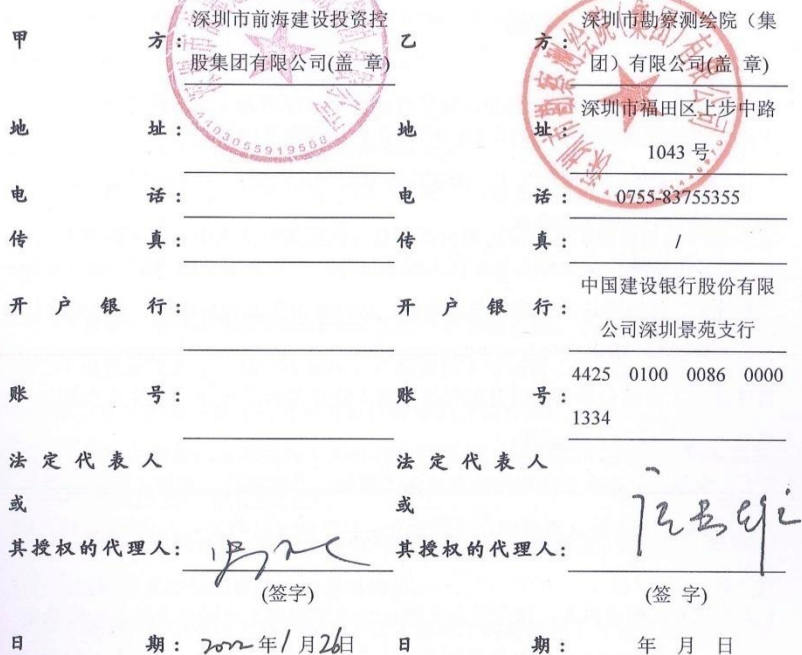 甲 方： 深圳市前海建设投资控
股集团有限公司(盖 章)
地 址：
电 话：
传 真：
开 户 银 行：
账 号：
法 定 代 表 人
或
其授权的代理人：
(签字)
日 期： 2022年1月26日
乙 方： 深圳市勘察测绘院（集
团）有限公司(盖 章)
地 址： 深圳市福田区上步中路
1043 号
电 话： 0755-83755355
传 真： /
开 户 银 行： 中国建设银行股份有限
公司深圳景苑支行
账 号： 4425 0100 0086 0000
1334
法 定 代 表 人
或
其授权的代理人：
(签 字)
日 期： 年 月 日
4403055919588
深圳市勘察测绘院（集团）有限公司